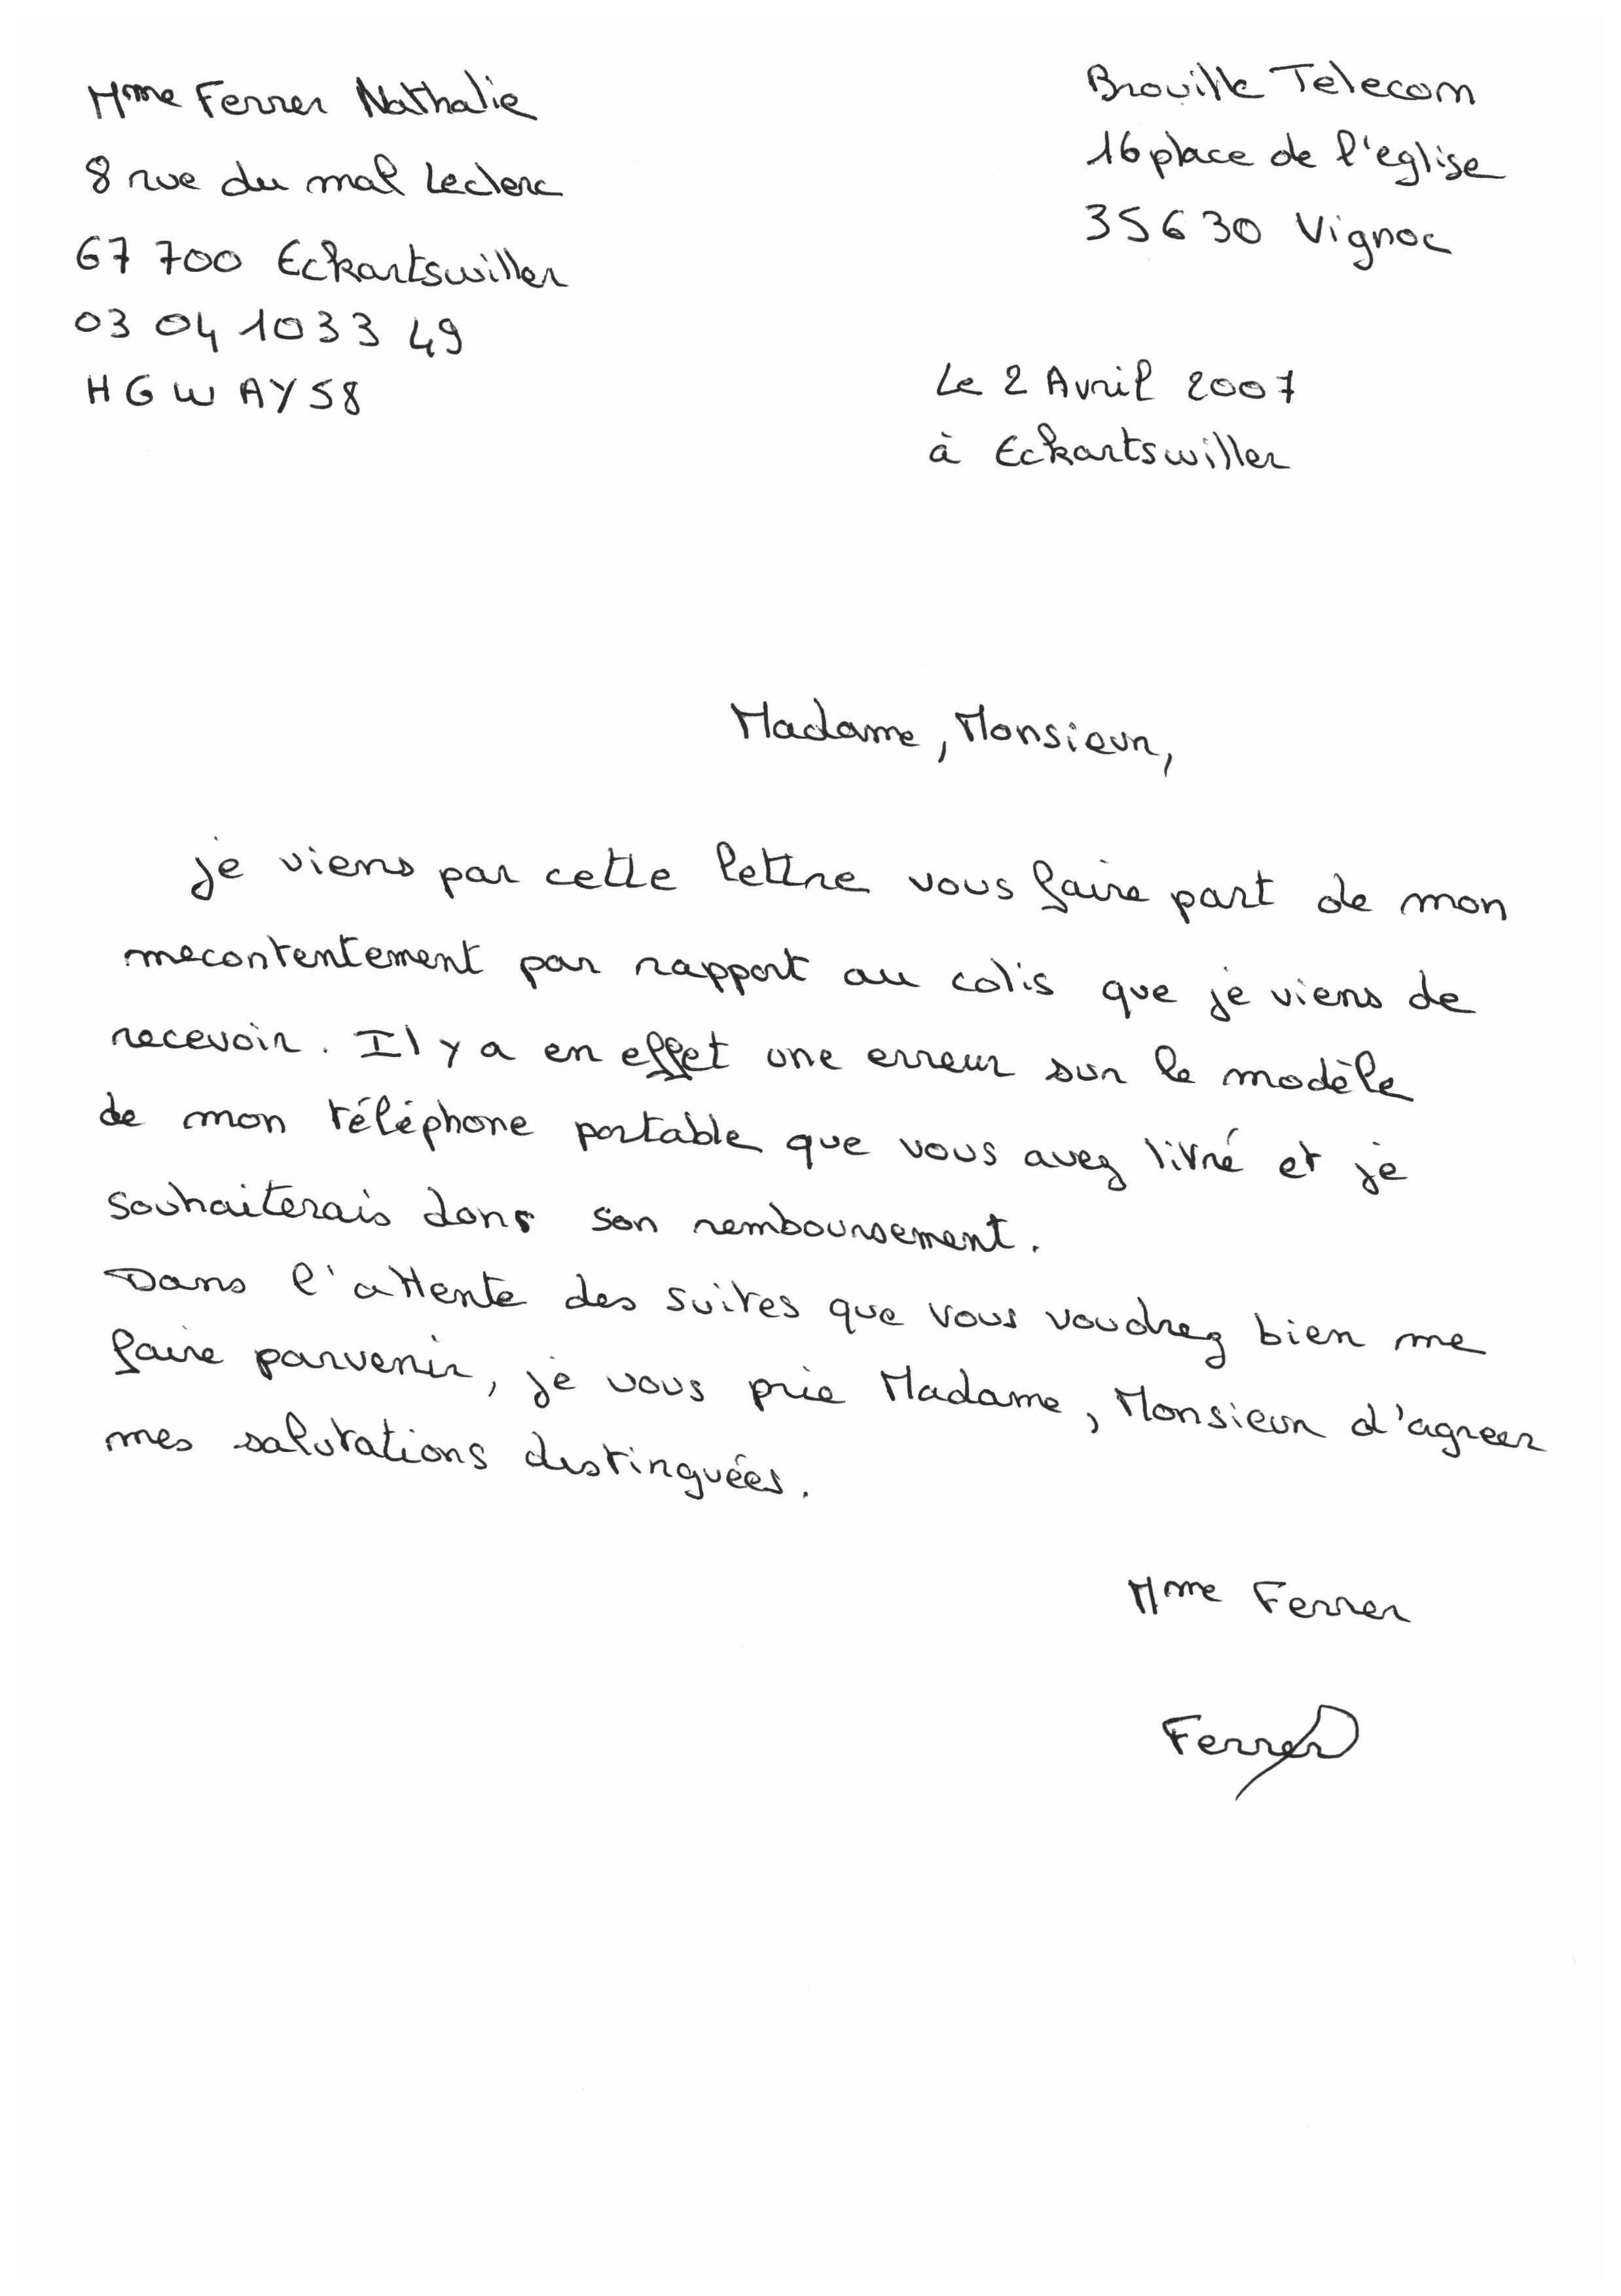 Mme Ferrer Nathalie
8 rue du mal Leclerc
67 700 Eckartswiller
03 04 10 33 49
HGWAY58
Brouille Telecom
16 place de l'eglise
35630 Vignoc
Le 2 Avril 2007
à Eckartswiller
Madame, Monsieur,
je viens par cette lettre vous faire part de mon
mecontentement par rapport au colis que je viens de
recevoir. Il y a en effet une erreur sur le modèle
de mon téléphone portable que vous avez livré et je
souhaiterais donc son remboursement.
Dans l'attente des suites que vous voudrez bien me
faire parvenir, je vous prie Madame, Monsieur d'agreer
mes salutations distinguées.
Mme Ferrer
Ferrer